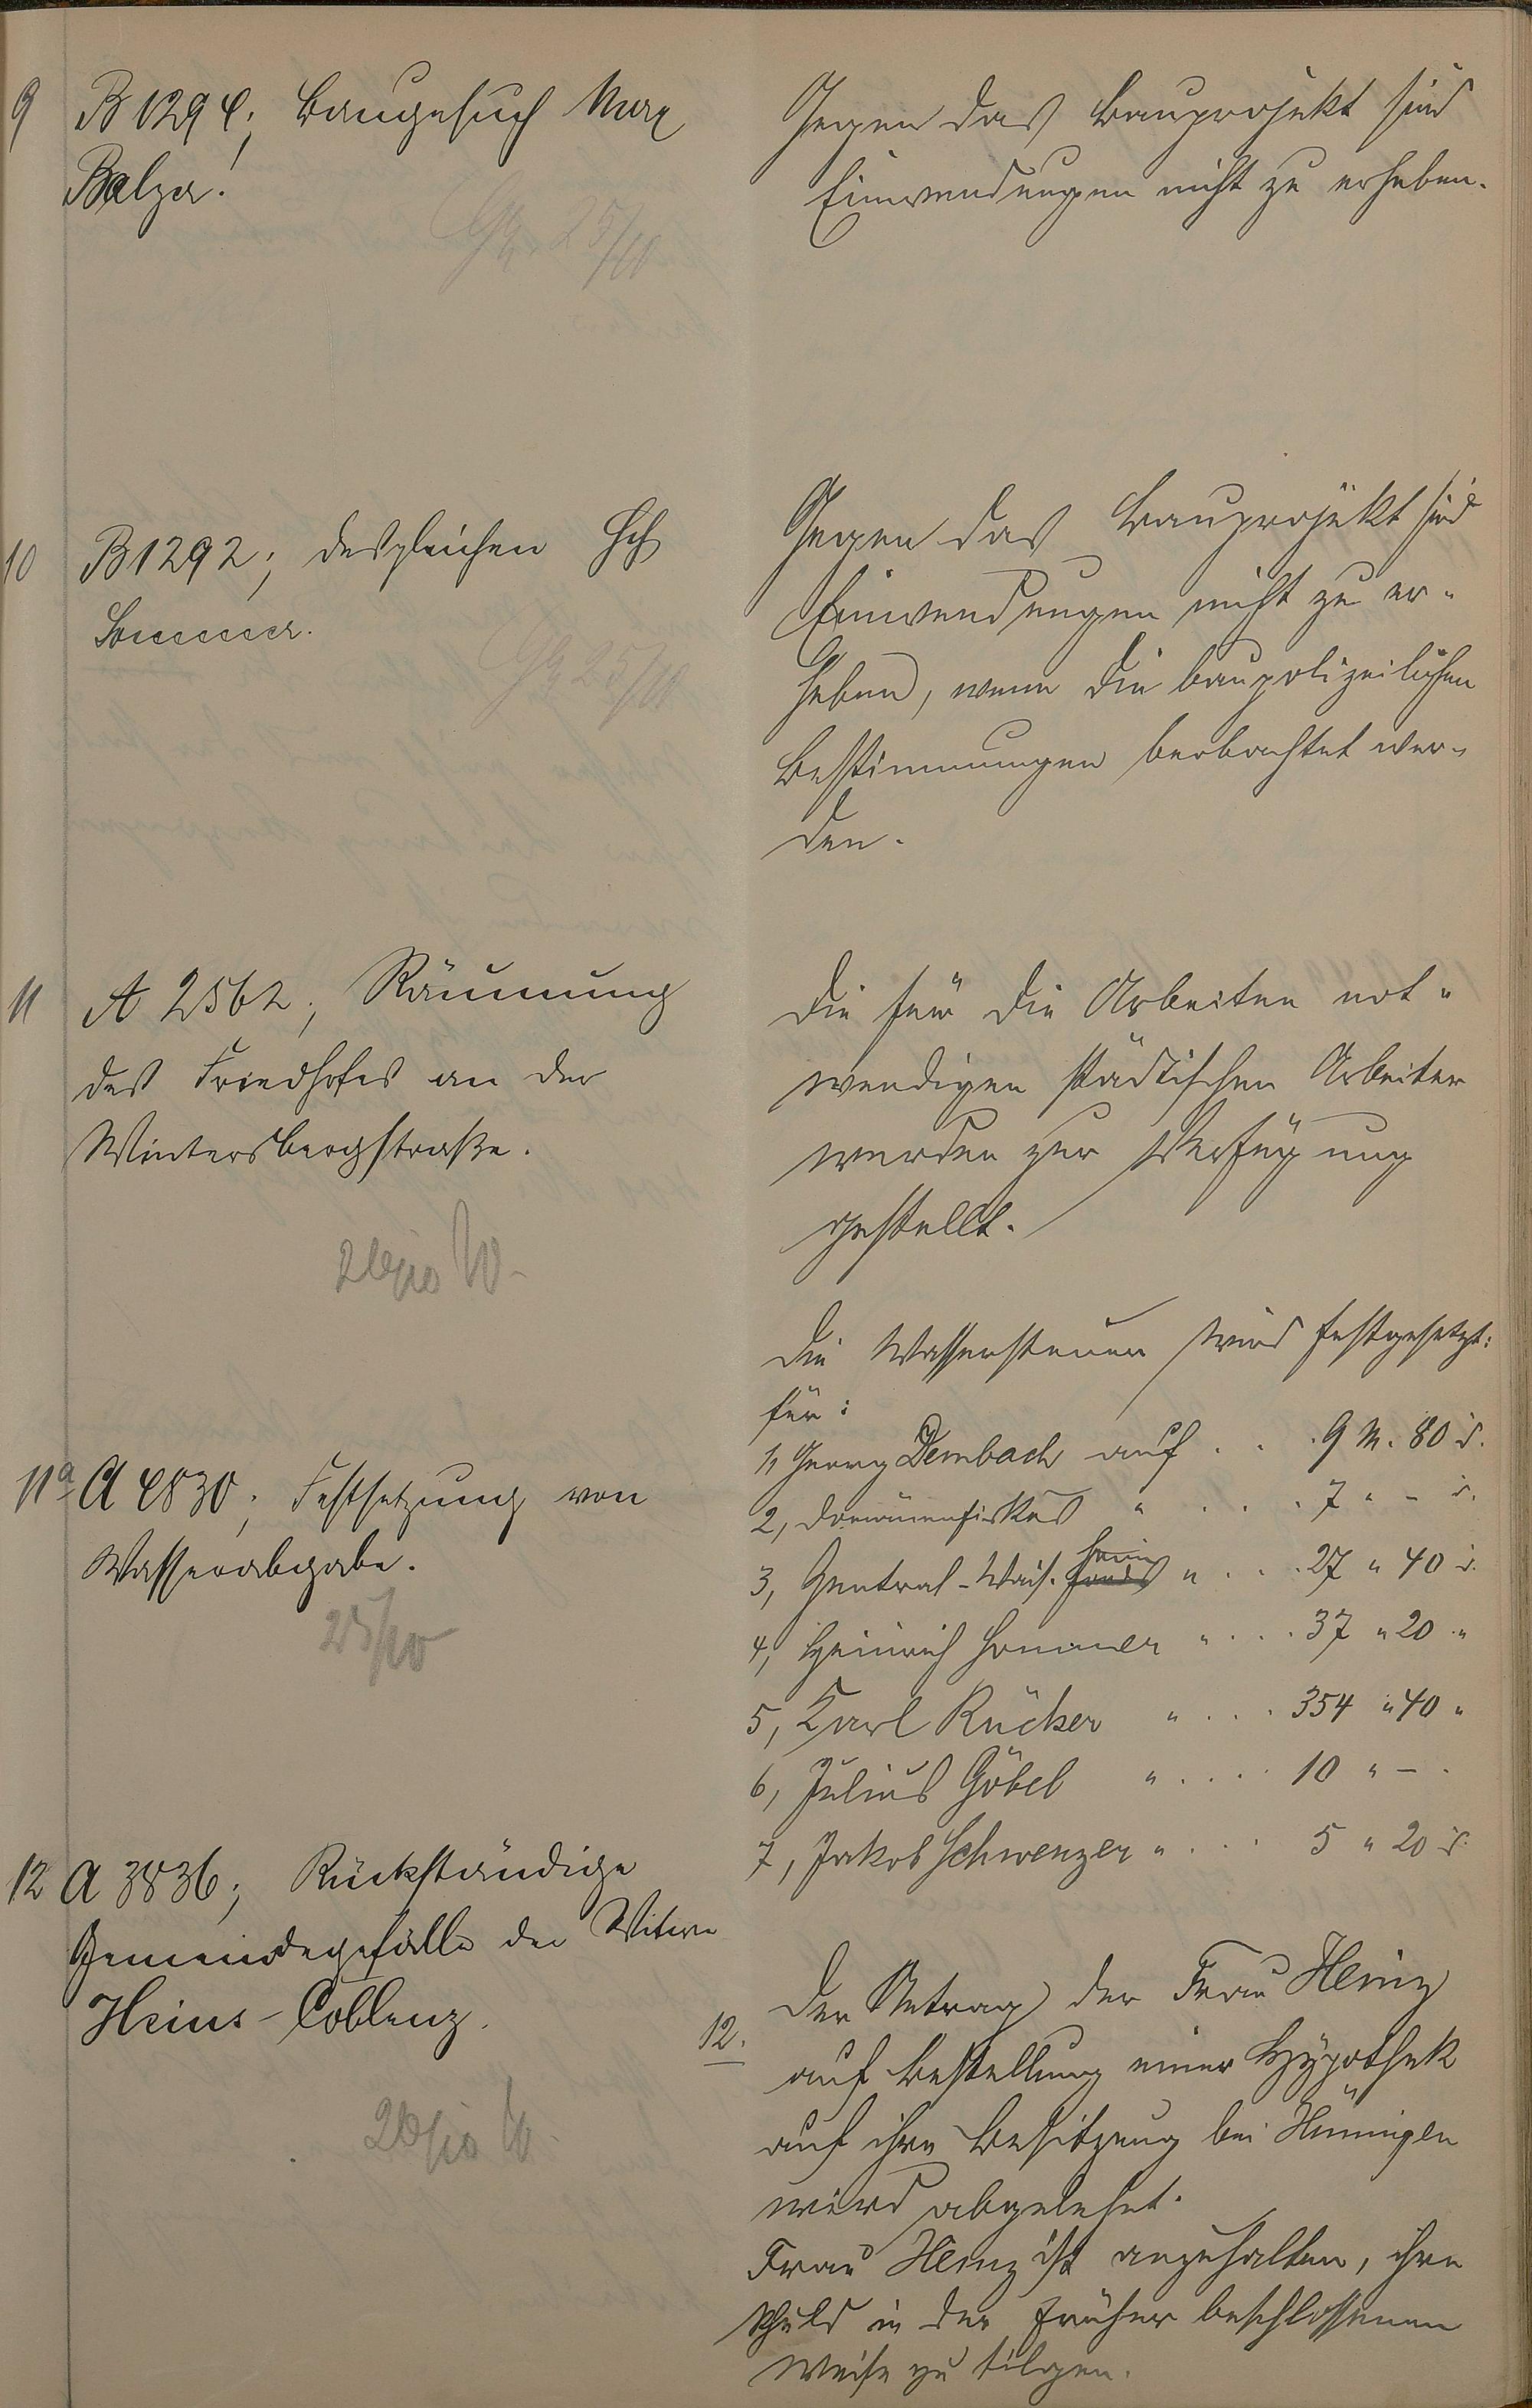 9 B 1294; Baugesuch Max
Balzer!
Gegen das Bauprojekt sind
Einwendungen nicht zu erheben.
25/10
10 B 1292; desgleichen Hch
Sommer.
25/10
Gegen das Bauprojekt sind
Einwendungen nicht zu er-
heben, wenn die baupolizeilichen
Bestimmungen beobachtet wer-
den.
11 A 2562; Räumung
des Friedhofes an der
Wintersbergstraße.
26/10 W.
Die für die Arbeiten not-
wendigen städtischen Arbeiter
werden zur Verfügung
gestellt.
11a A 4830; Festsetzung von
Wasserabgabe.
25/10
Die Wassersteuer wird festgesetzt:
für:
1, Georg Dembach auf . . . 9 M. 80 d.
2, Domänenfiskus " . . . 7 " – d.
3, Zentral-Wais. heim " . . . 27 " 40 d.
4, Heinrich Sommer " . . . . 37 " 20 "
5, Karl Rücker " . . . 354 " 40 "
6, Julius Göbel " . . . . 10 " – .
7, Jakob Schwenzer " . . . 5 " 20 d.
12 A 3836; Rückständige
Gemeindegefälle der Witwe
Heins-Coblenz.
26/10 W.
12. Der Antrag der Frau Heinz
auf Bestellung einer Hypothek
auf ihre Besitzung bei Hönningen
wird abgelehnt.
Frau Heinz ist anzuhalten, ihre
Schuld in der früher beschlossenen
Weise zu tilgen.